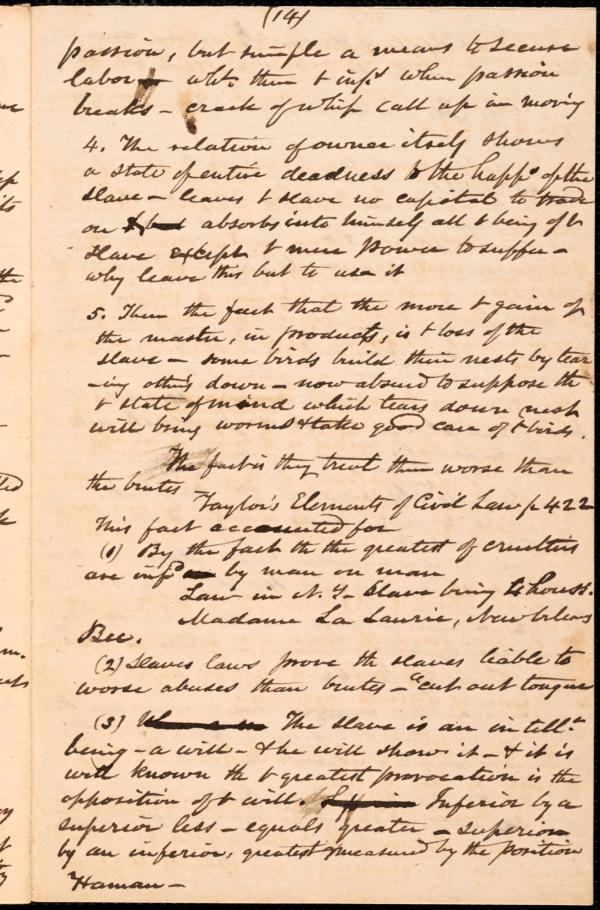 (14)
passion, but simple a means to secure
labor – whts then & inf.d when passion
breaks – crack of whip call up in moving
4. The relation of owner itself shows
a state of entire deadness to the happ.s of the
slave – leaves t slave no capital to trade
on absorbs into himself all t being of t
slave except t mere power to suffer –
why leave this but to use it
5. Then the fact that the more t gain of
the master, in products, is t loss of the
slave – some birds build their nests by tear
-ing others down – now absurd to suppose th
t state of mind which tears down nest
will bring worms & take good care of t birds.
The fact is they treat them worse than
the brutes
Taylor's Elements of Civil Law p 422
This fact accounted for
(1) By the fact th the greatest of cruelties
are inf.d by man on man
Law in N.Y. Slave being to house.
Madame La Laurie, New Orleans
Bee.
(2) Slaves laws prove th slaves liable to
worse abuses than brutes – "cut out tongue
(3) The slave is an intell.t
being – a will – & he will show it – & it is
well known th t greatest provocation is the
opposition of t will. Inferior by a
superior less – equals greater – superior
by an inferior, greatest measured by the position
Haman –